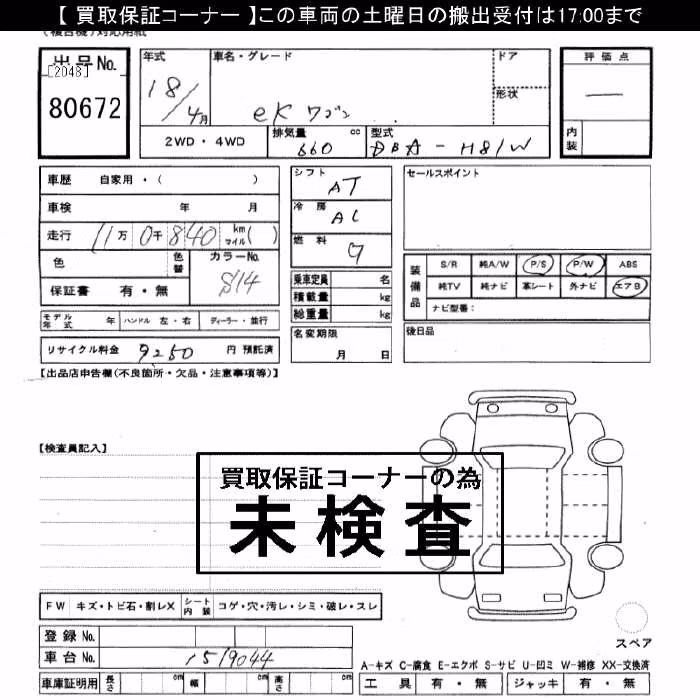 【 買取保証コーナー 】この車両の土曜日の搬出受付は17:00まで
(複合機)対応用紙
出品No.
[2048]
80672
年式
18/4月
車名・グレード
eKワゴン
ドア
形状
評価点
—
内装
2WD・4WD
排気量 cc
660
型式
DBA-H81W
車歴 自家用・( )
車検 年 月
走行 11万0千840 km マイル( )
色
色替
カラーNo.
S14
保証書 有・無
モデル年式 年 ハンドル 左・右 ディーラー・並行
リサイクル料金 9250 円 預託済
シフト AT
冷房 AC
燃料 ガ
乗車定員 名
積載量 kg
総重量 kg
名変期限
月 日
セールスポイント
装備品
S/R 純A/W P/S P/W ABS
純TV 純ナビ 革シート 外ナビ エアB
ナビ型番:
後日品
【出品店申告欄(不良箇所・欠品・注意事項等)】
【検査員記入】
買取保証コーナーの為
未検査
FW キズ・トビ石・割レX シート内装 コゲ・穴・汚レ・シミ・破レ・スレ
登録No.
車台No. 1519044
車庫証明用 長さ cm 幅 cm 高さ cm
スペア
A-キズ C-腐食 E-エクボ S-サビ U-凹ミ W-補修 XX-交換済
工具 有・無 ジャッキ 有・無